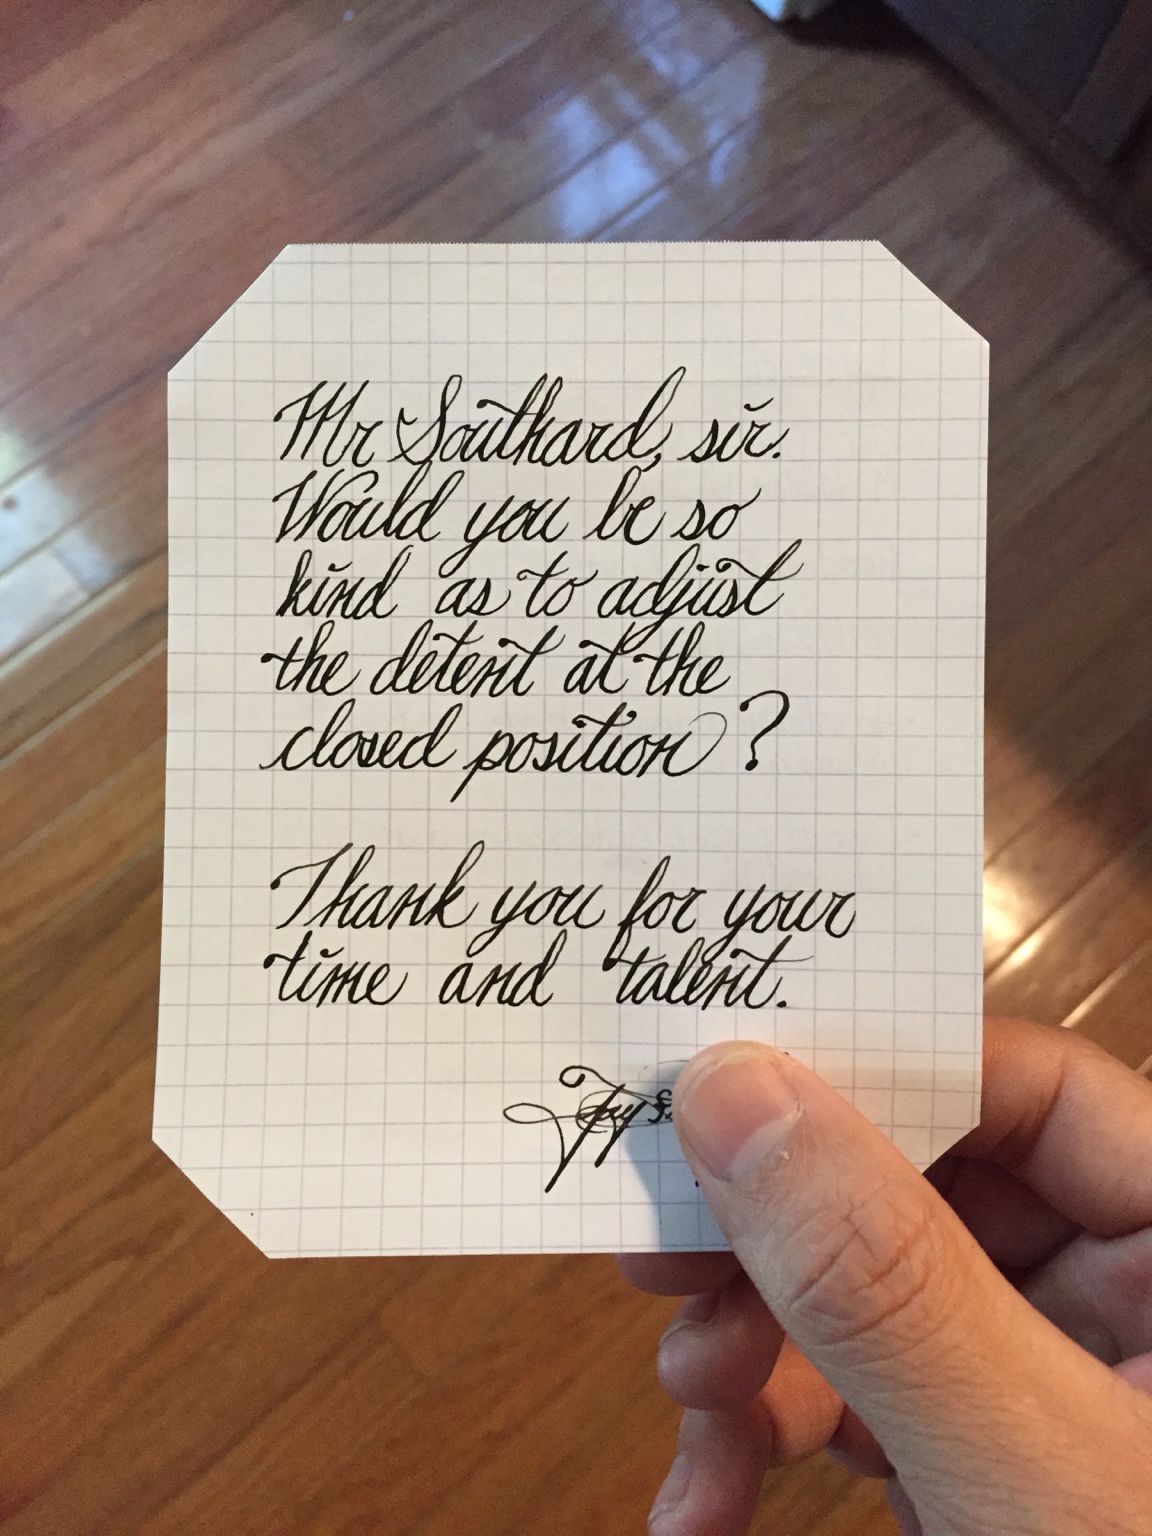 Mr Southard, sir.
Would you be so
kind as to adjust
the detent at the
closed position?
Thank you for your
time and talent.